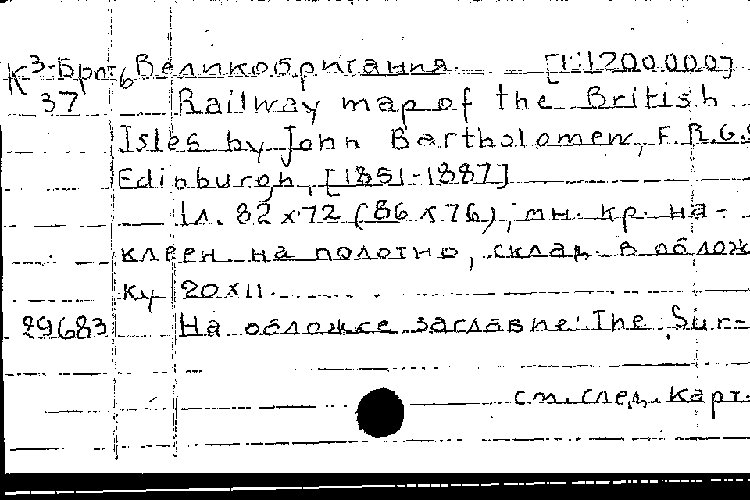 К3-Брит6 Великобритания. [1:1200000]
37 Railway map of the British
Isles by John Bartholomew, F.R.G.S
Edinburgh, [1851-1887]
1л. 82x72 (86x76), мн. кр. на-
клеен на полотно, склад. в облож
ку 20x11.
29683 На обложке заглавие: The Sur-
см. след. карт.